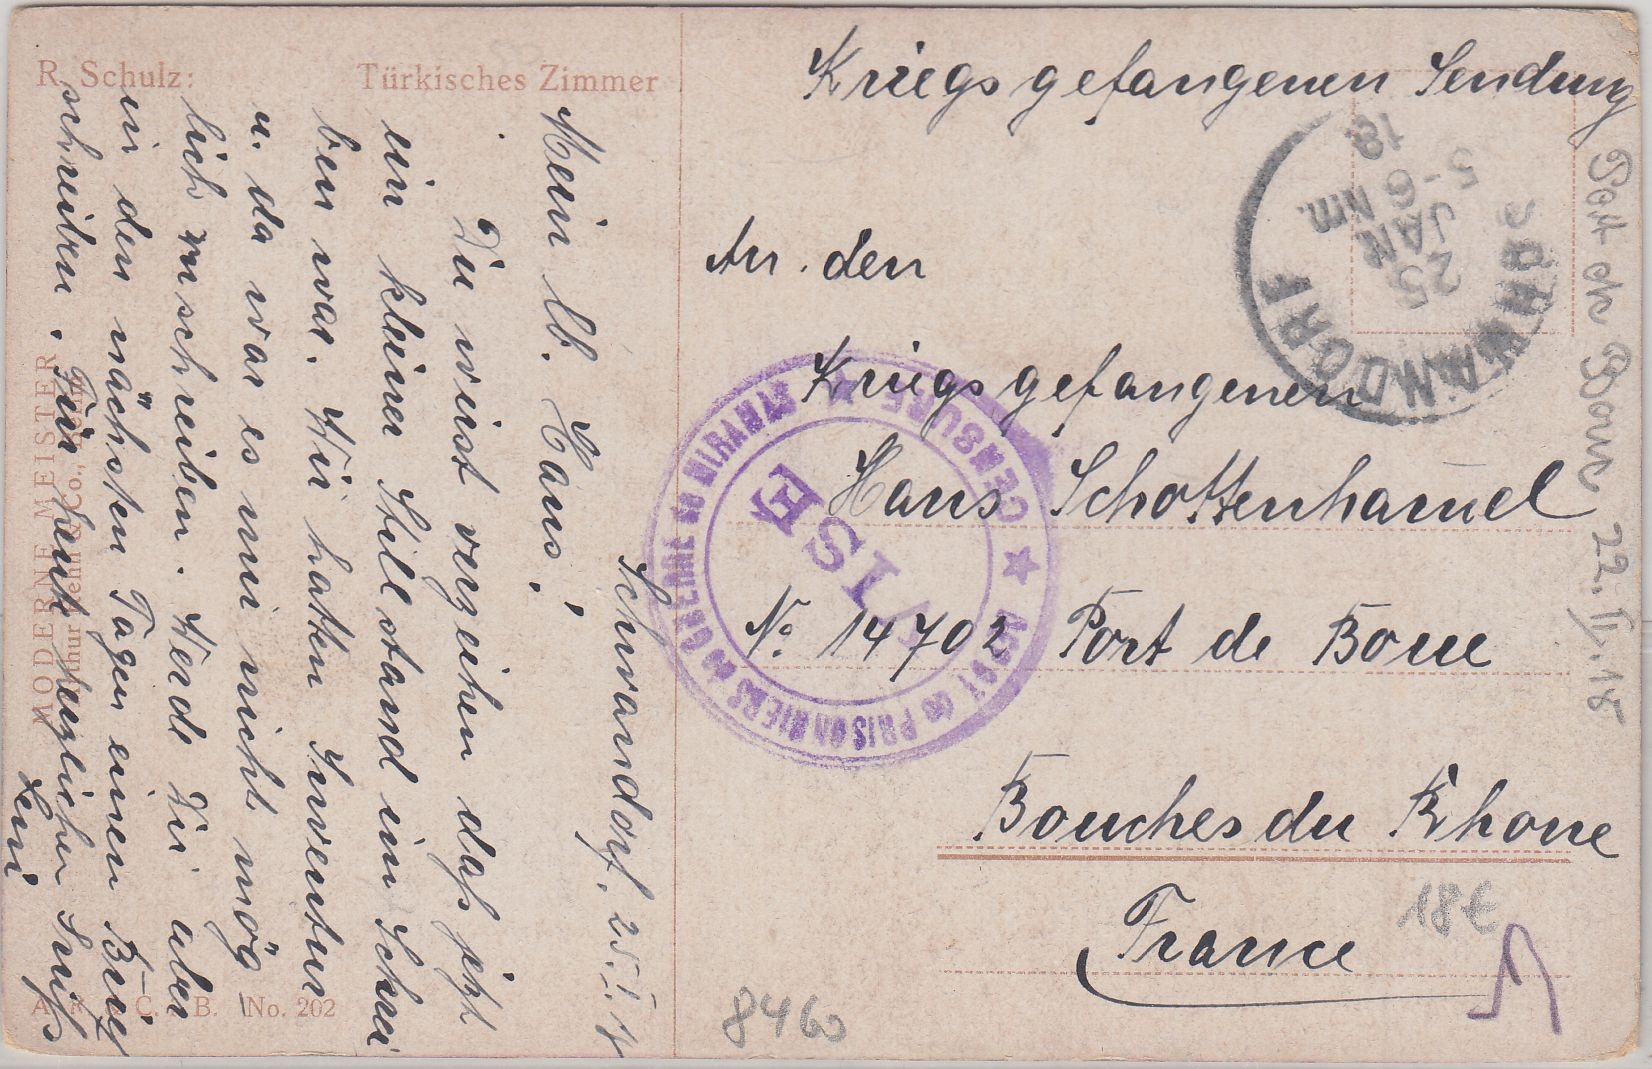 R. Schulz:
Türkisches Zimmer
MODERNE MEISTER
Arthur Rehn & Co., Berlin
A. R. & C. i. B. No. 202
Schwandorf. 25.I.18
Mein lb. Hans!
Du wirst verzeihen daß jetzt
ein kleiner Stillstand im Schrei
ben war. Wir hatten Inventur
u. da war es mir nicht mög
lich zu schreiben. Werde Dir aber
in den nächsten Tagen einen Brief
schreiben. Für heute herzlicher Gruß
Kriegsgefangenen Sendung
An den
Kriegsgefangenen
Hans Schottenhamel
No. 14702 Port de Bouc
Bouches du Rhone
France
SCHWANDORF
25
JAN
5-6 Nm.
18
DEPOT DE PRISONNIERS DE GUERRE DE MIRAMAS
CENSURE
VISÉ
Port de Bouc 22.II.18
18 €
8460